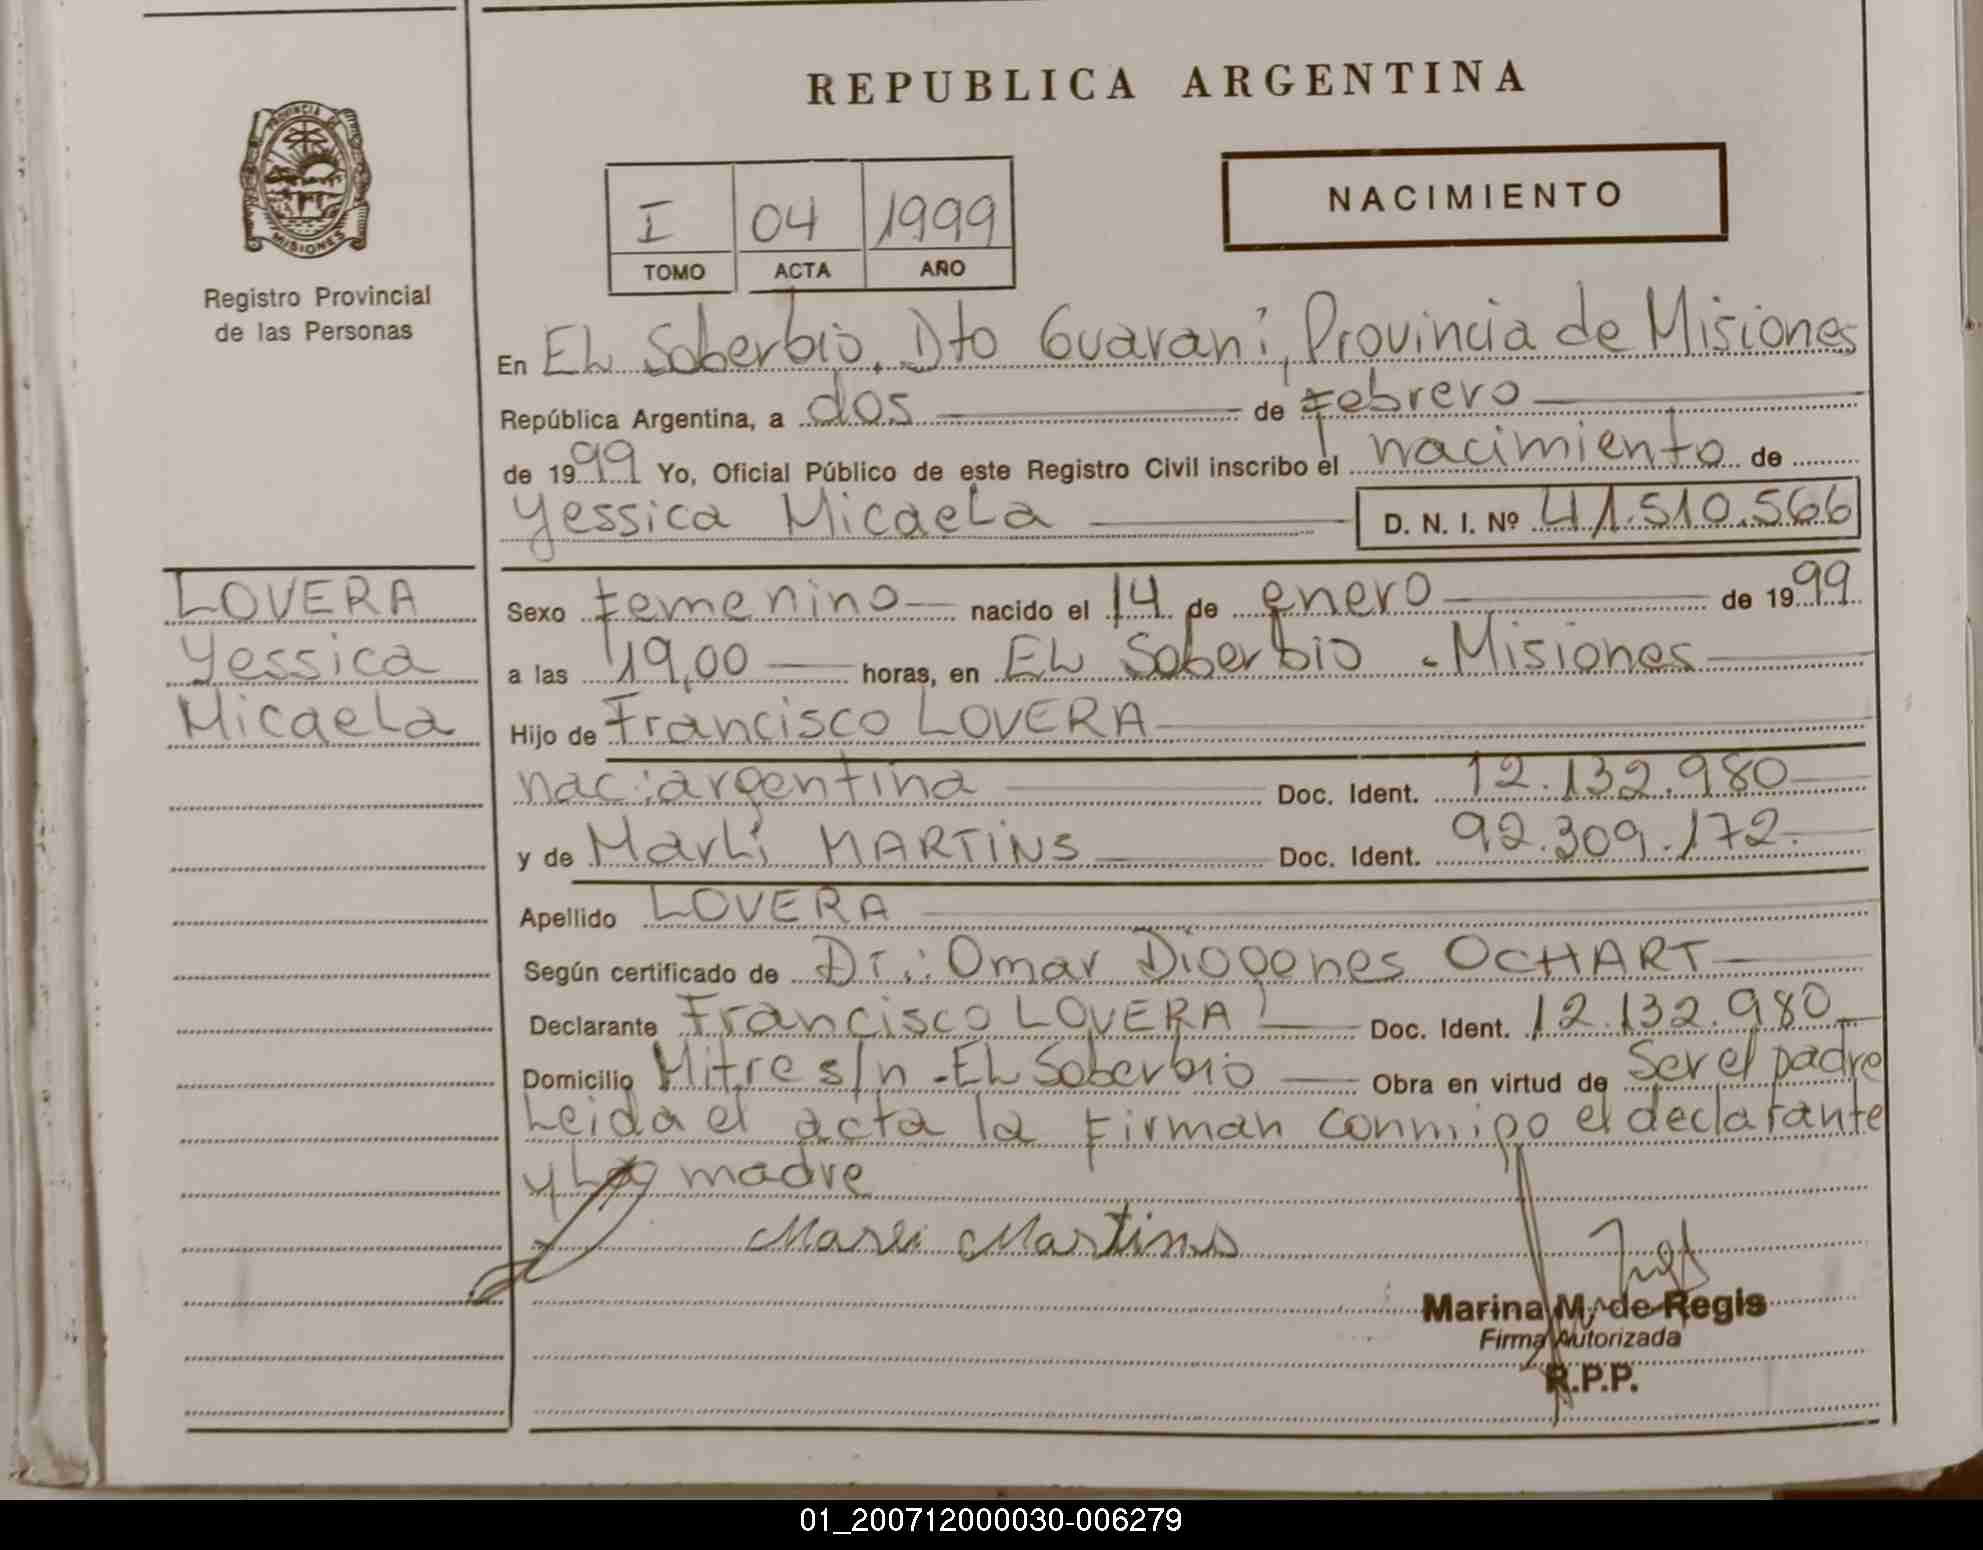 REPUBLICA ARGENTINA
PROVINCIA DE
MISIONES
Registro Provincial
de las Personas
I 04 1999
TOMO ACTA AÑO
NACIMIENTO
En El Soberbio, Dto Guaraní, Provincia de Misiones
República Argentina, a dos de febrero
de 1999 Yo, Oficial Público de este Registro Civil inscribo el nacimiento de
Yessica Micaela D. N. I. Nº 41.510.566
LOVERA
Yessica
Micaela
Sexo femenino nacido el 14 de enero de 1999
a las 19,00 horas, en El Soberbio - Misiones
Hijo de Francisco LOVERA
nac: argentina Doc. Ident. 12.132.980
y de Marli MARTINS Doc. Ident. 92.309.172.
Apellido LOVERA
Según certificado de Dr.: Omar Diogenes OCHART
Declarante Francisco LOVERA Doc. Ident. 12.132.980
Domicilio Mitre s/n - El Soberbio Obra en virtud de Ser el padre
Leida el acta la firman conmigo el declarante
y la madre
Marli Martins
Marina M. de Regis
Firma Autorizada
R.P.P.
01_200712000030-006279